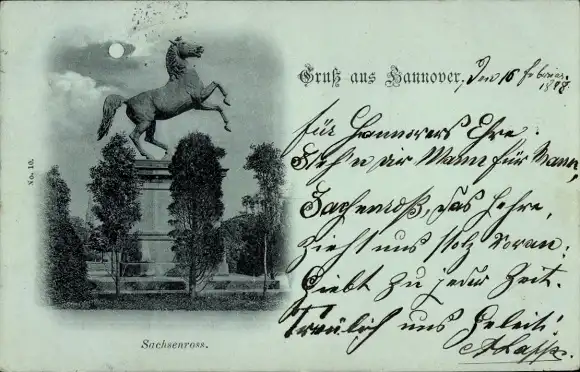 Gruß aus Hannover, den 16 Februar
1898.
für Hannovers Ehre.
Steh'n wir Mann für Mann,
Sachsenroß, das hehre,
Zieht uns stolz voran:
Giebt zu jeder Zeit.
Treulich uns Geleit!
No. 10.
Sachsenross.